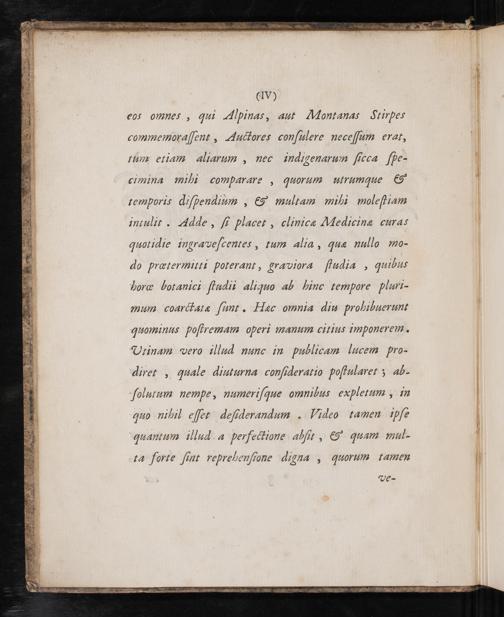 (IV)
eos omnes , qui Alpinas, aut Montanas Stirpes
commemoraſſent , Auctores conſulere neceſſum erat,
tùm etiam aliarum , nec indigenarum ſicca ſpe-
cimina mihi comparare , quorum utrumque &
temporis diſpendium , & multam mihi moleſtiam
intulit . Adde , ſi placet , clinicæ Medicinæ curas
quotidie ingraveſcentes , tum alia , quæ nullo mo-
do prætermitti poterant, graviora ſtudia , quibus
horæ botanici ſtudii aliquo ab hinc tempore pluri-
mum coarctatæ ſunt . Hæc omnia diu prohibuerunt
quominus poſtremam operi manum citius imponerem.
Utinam vero illud nunc in publicam lucem pro-
diret , quale diuturna conſideratio poſtularet ; ab-
ſolutum nempe, numeriſque omnibus expletum , in
quo nihil eſſet deſiderandum . Video tamen ipſe
quantum illud a perfectione abſit , & quam mul-
ta forte ſint reprehenſione digna , quorum tamen
ve-